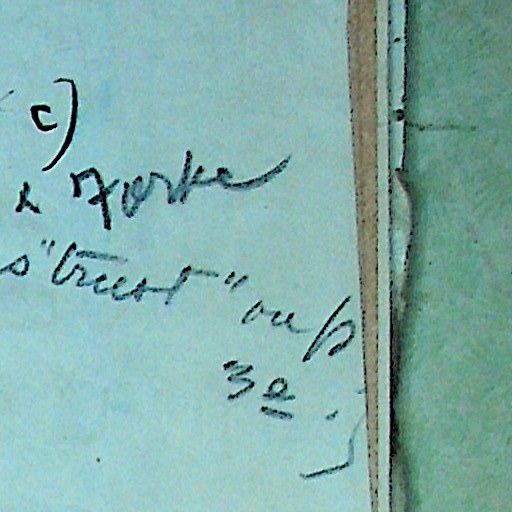 c)
Forke
s "trust" on p
3e.